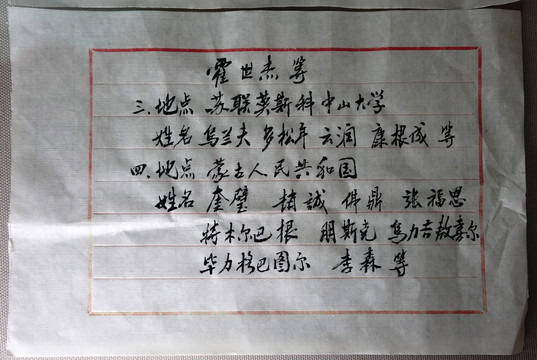 霍世杰 等
三、地点 苏联莫斯科中山大学
姓名 乌兰夫 多松年 云润 康根成 等
四、地点 蒙古人民共和国
姓名 奎璧 赵誠 佛鼎 张福恩
特木尔巴根 朋斯克 乌力吉敖喜尔
毕力格巴图尔 李森 等